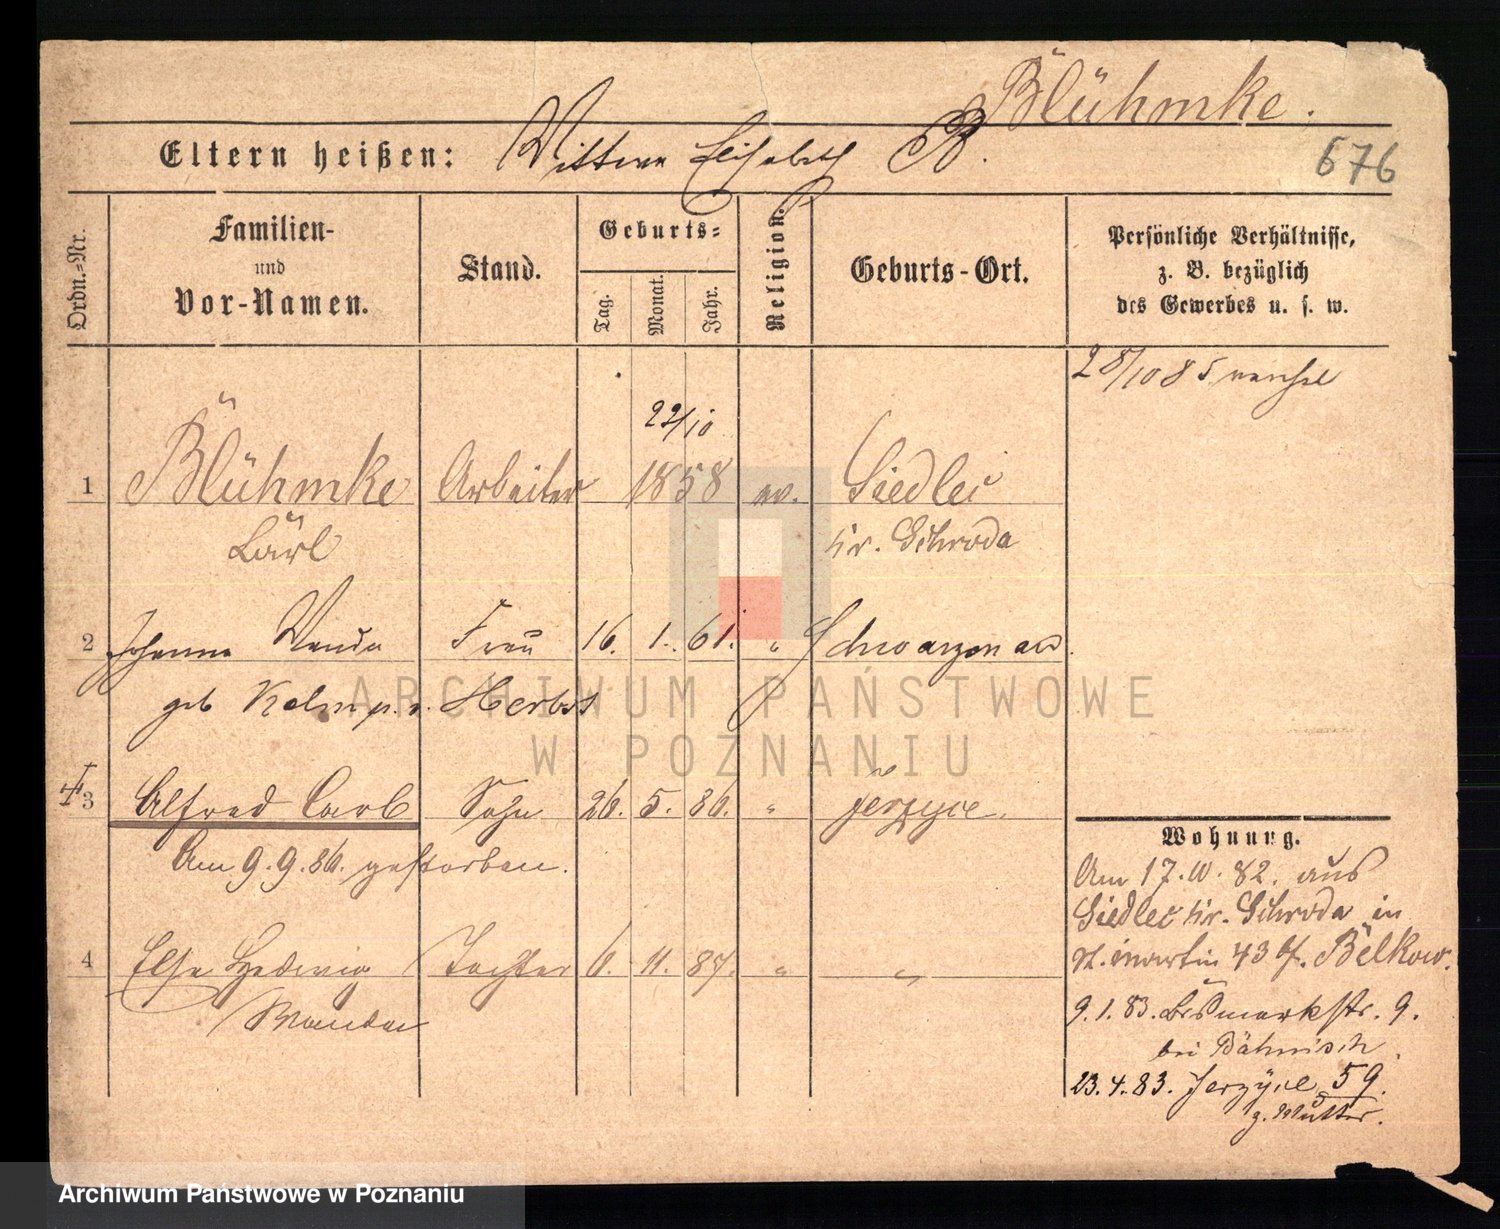 Blühmke.
Eltern heißen: Wittwe Elisabeth B.
676
Ordn.=Nr.
Familien-
und
Vor-Namen.
Stand.
Geburts=
Tag.
Monat.
Jahr.
Religion.
Geburts-Ort.
Persönliche Verhältnisse,
z. B. bezüglich
des Gewerbes u. s. w.
28/10 85
22/10
1 Blühmke Arbeiter 1858 ev. Siedlec
Carl Kr. Schroda
2 Johanna Wanda Frau 16. 1. 61. " Schwarzenau
geb Herbst
3 Alfred Carl Sohn 26. 5. 86. " Jerzyce.
Am 9.9.86. gestorben.
4 Else Hedwig Tochter 6. 11. 87. " "
Wanda
Wohnung.
Am 17.10.82. aus
Siedlec Kr. Schroda in
St. Martin 43 Bëlkow.
9.1.83. Bismarkstr. 9.
bei Bähnisch.
23.4.83. Jerzyce 59.
z. Mutter.
ARCHIWUM PAŃSTWOWE
W POZNANIU
Archiwum Państwowe w Poznaniu